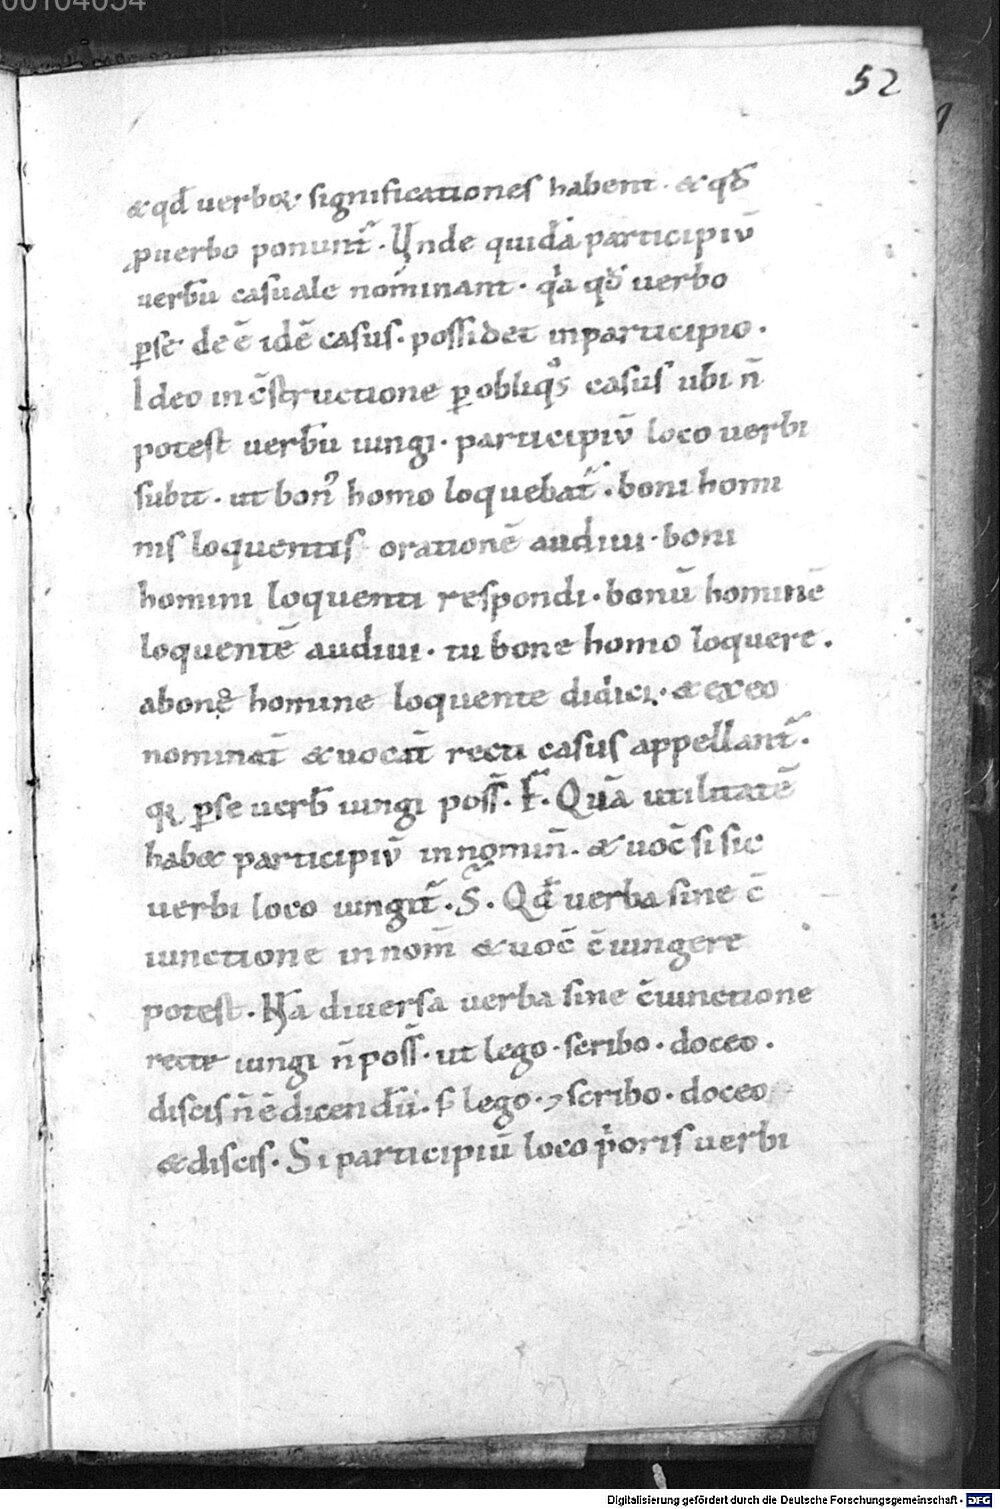 00104054
52
& qđ verboꝝ. significationes habent. & qđ
ꝓ uerbo ponunt᷑. Vnde quidā participiū
uerbū casuale nominant. qͣa qđ uerbo
ꝑse deē idē casus. possidet inparticipio.
Ideo in c̄structione ꝑ obliqͦs casus ubi n̄
potest uerbū iungi. participiū loco uerbi
subit. ut bonꝰ homo loquebat᷑. boni homi
nis loquentis orationē audiui. boni
homini loquenti respondi. bonū hominē
loquentē audiui. tu bone homo loquere.
abone homine loquente didici. & exeo
nominat̄ & uocat̄ recti casus appellant᷑.
qꝛ ꝑse uerb̄ iungi poss̄. F. Quā utilitatē
habet participiū innomin̄. & uoc̄ si sic
uerbi loco iungit᷑. S. Qđ uerba sine c̄
iunctione in nom̄ & uoc̄ c̄iungere
potest. Nā diuersa uerba sine c̄iunctione
recte iungi n̄ poss̄. ut lego. scribo. doceo.
discis n̄ ē dicendū. s; lego. ⁊ scribo. doceo
& discis. Si participiū loco p̍oris uerbi
Digitalisierung gefördert durch die Deutsche Forschungsgemeinschaft - DFG